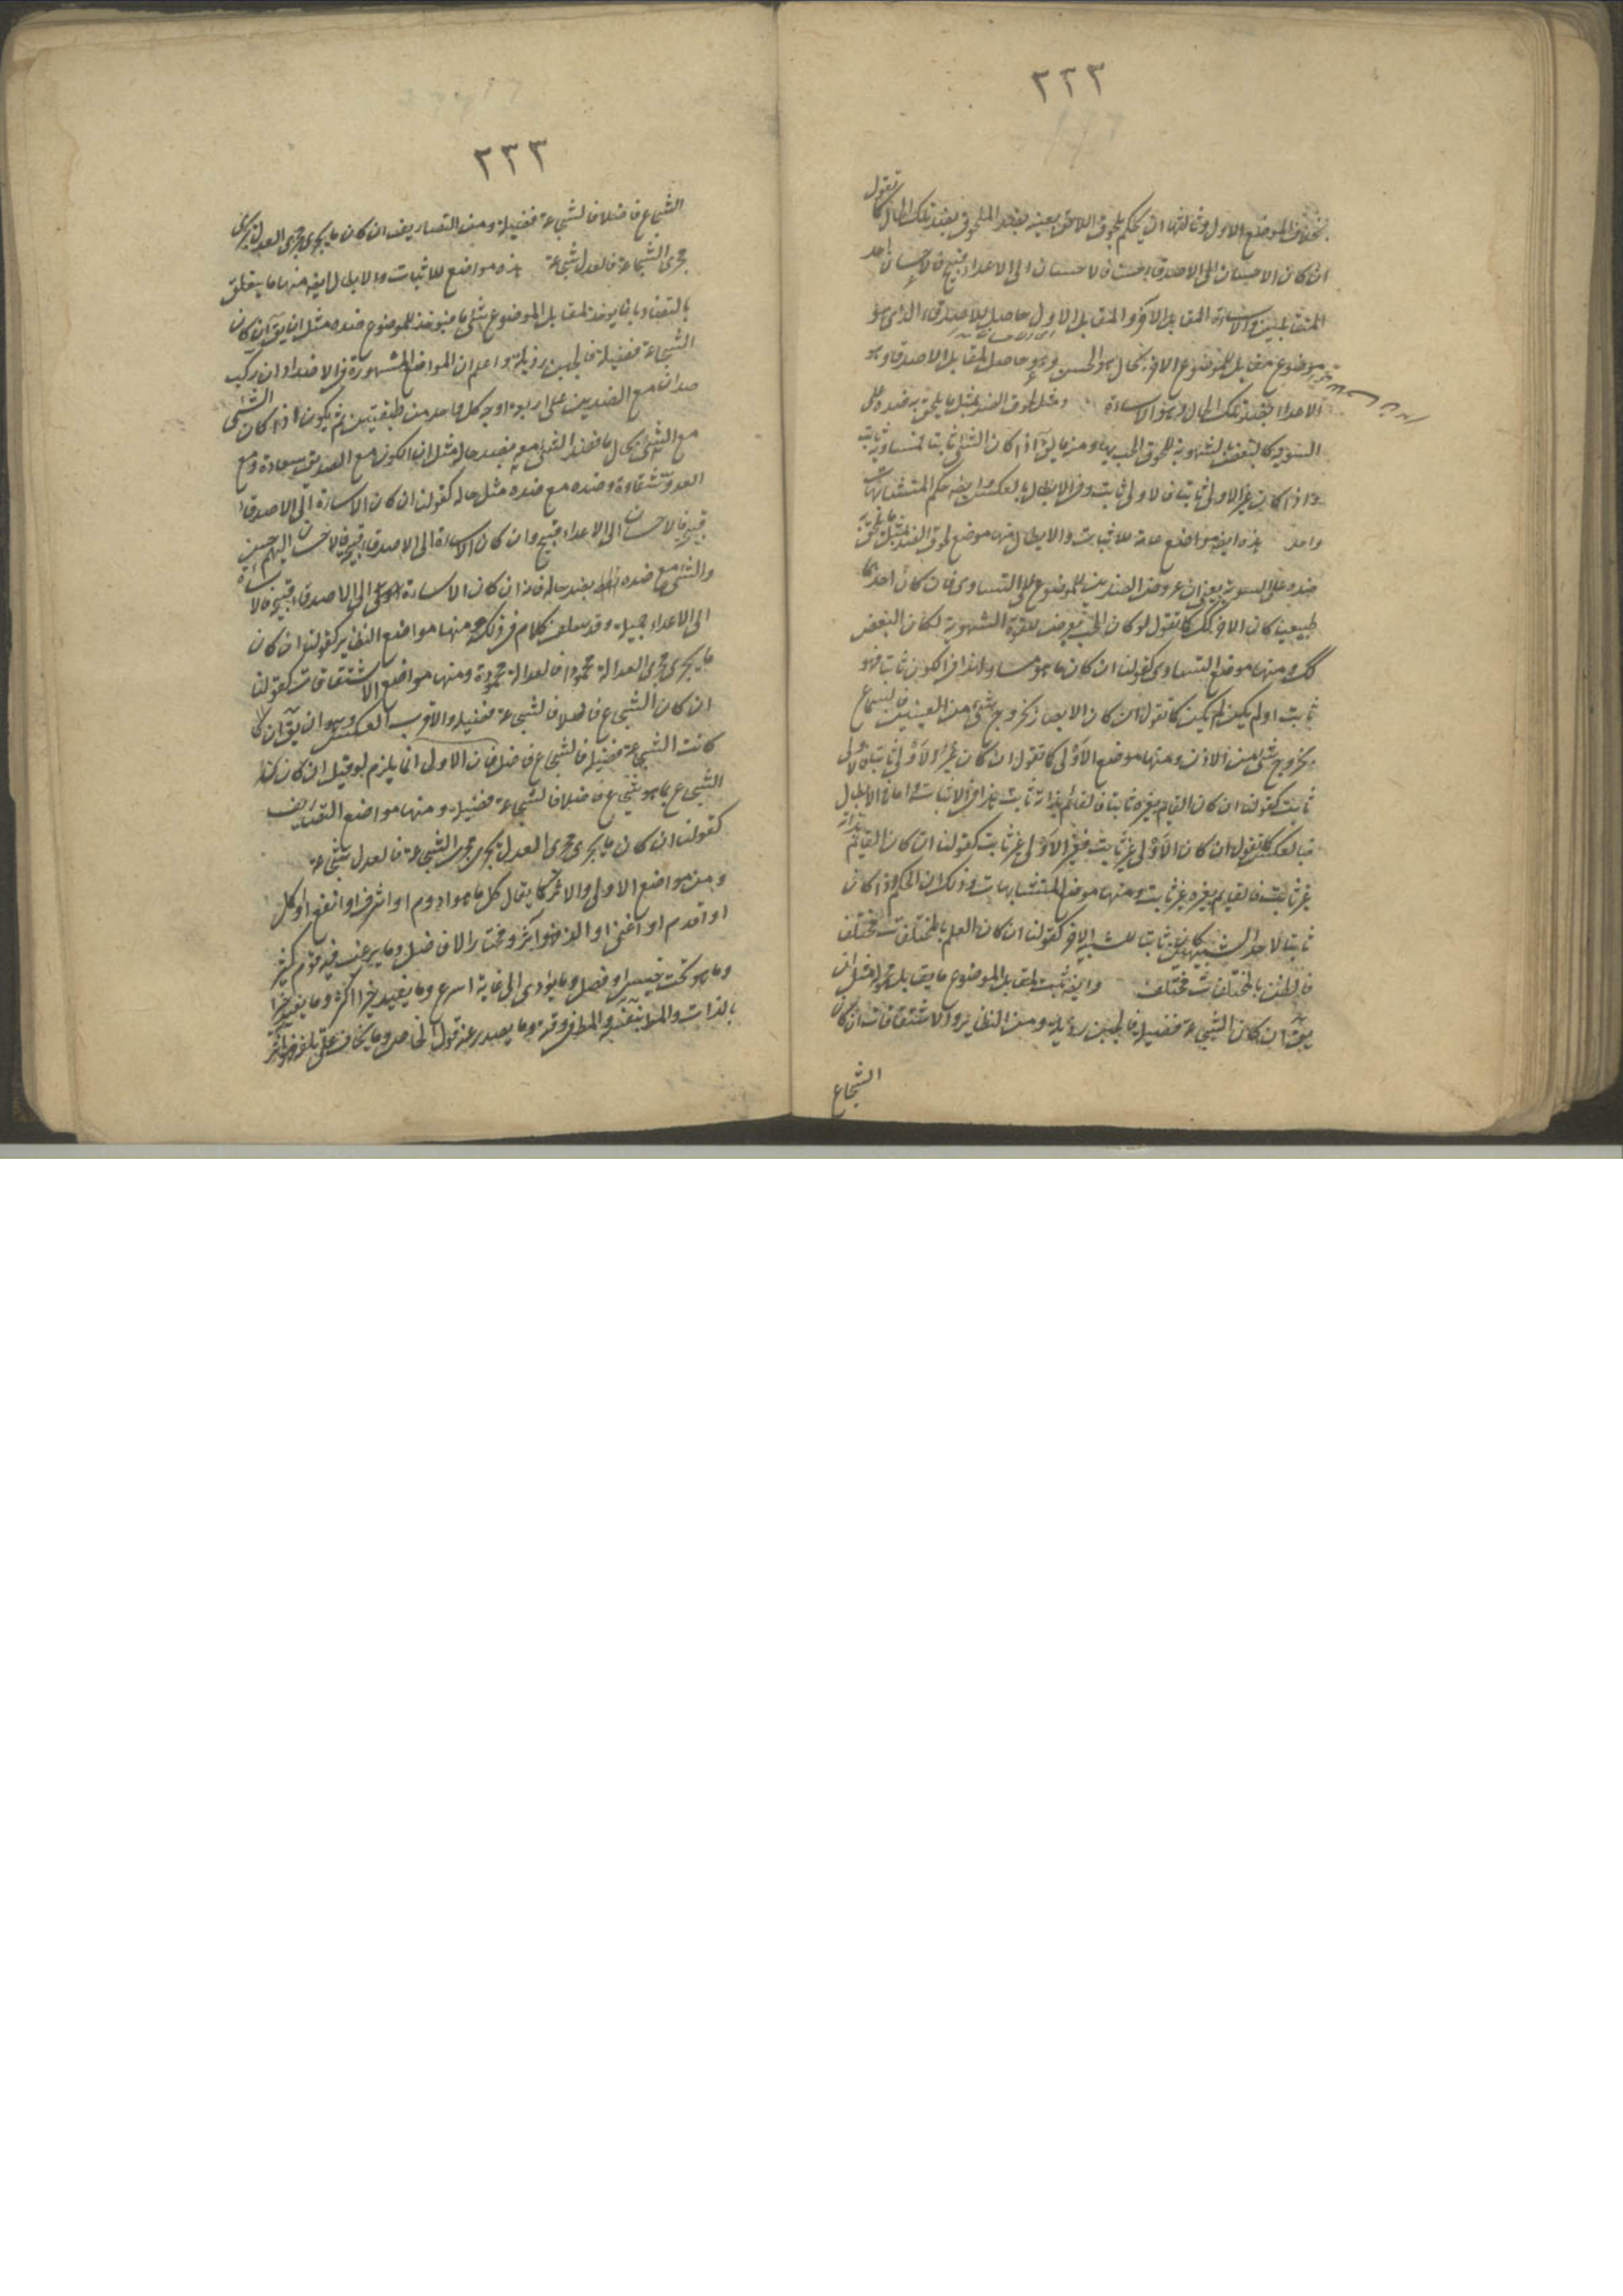 ٢٢٢
تقول
بخلاف الموضع الاول وثالثها ان يحكم بلحوق اللاحق بعينه بضد الملحوق بضد تلك الحال كما
ان كان الاحسان الى الاصدقاء حسنا فالاحسان الى الاعداء قبيح فالاحسان احد
المتقابلين والاساءة المقابل الاخر والمقابل الاول حاصل للاصدقاء الذى هو
موضوع مقابل للموضوع الاخر بحال هو الحسن وهو حاصل لمقابل الاصدقاء وهو
الاعداء بضد تلك الحال وهو الاساءة ومثل لحوق الضد بمثل ما يلحق به ضده على
السوية كالبغض للشهوية للحوق المحبة بها ومنه ما يق اذا كان الشئ ثابتا لمساويه ثابت
واذا كان غير الاولى ثابتا فالاولى ثابت وفى الابطال بالعكس وايضا حكم المتشابهات
واحد هذه ايضا مواضع عامة للاثبات والابطال منها موضع لحوق الضد بمثل ما يلحق
ضده على السوية يعنى ان عروض الضدين للموضوع على التساوى فان كان احدهما
طبيعيا كان الاخر كك كما نقول لو كان الحب يعرض للقوة الشهوية لكان البغض
كك ومنها موضع التساوى كقولنا ان كان ما هو مساو لهذا فى الكون ثابتا فهو
ثابت او لم يكن لم يكن كما نقول ان كان الابصار بخروج شئ من العينين فالسماع
بخروج شئ من الاذن ومنها موضع الاولى كما نقول ان كان غير الاولى ثابتا فالاولى
ثابت كقولنا ان كان القايم بغيره ثابتا فالقائم بذاته ثابت هذا فى الاثبات واما فى الابطال
فبالعكس كما نقول ان كان الاولى غير ثابت فغير الاولى غير ثابت كقولنا ان كان القايم بذاته
غير ثابت فالقايم بغيره غير ثابت ومنها موضع المتشابهات وذلك ان الحكم اذا كان
ثابتا لاحد الشبيهين كان ثابتا للشبيه الاخر كقولنا ان كان العلم بالمختلفات مختلف
فالظن بالمختلفات مختلف وايضا يثبت لمقابل الموضوع ما يقابل محموله مثل ان
يق ان كان الشجاعة فضيلة فالجبن رذيلة ومن النظاير والاشتقاقات ان كان
الشجاع
٢٢٣
الشجاع فاضلا فالشجاعة فضيلة ومن التصاريف ان كان ما يجرى مجرى العدل يجرى
مجرى الشجاعة فالعدل شجاعة هذه مواضع للاثبات والابطال ايضا منها ما يتعلق
بالتضاد بان يوخذ لمقابل الموضوع شئ ما فيوخذ للموضوع ضده مثل ان يق ان كان
الشجاعة فضيلة فالجبن رذيلة واعلم ان المواضع المشهورة فى الاضداد ان تركب
ضدان مع الضدين على اربعة اوجه كل واحد من طبقتين ثم يكون اذا كان الشئ
مع الشئ بحال ما فضد الشئ معه بضد حاله مثل ان الكون مع الصديق سعادة ومع
العدو شقاوة وضده مع ضده مثل حاله كقولنا ان كان الاساءة الى الاصدقاء
قبيحة فالاحسان الى الاعداء قبيح وان كان الاساءة الى الاصدقاء قبيحة فالاحسان اليهم حسن
والشئ مع ضده بضد حاله فاذا ان كان الاساءة الى الاصدقاء قبيحة فالاساءة
الى الاعداء جميلة وقد سلف كلام فى ذلك ومنها مواضع النظاير كقولنا ان كان
ما يجرى مجرى العدالة محمودا فالعدالة محمودة ومنها مواضع الاشتقاقات كقولنا
ان كان الشجاع فاضلا فالشجاعة فضيلة والاقرب العكس وهو ان يق ان كا
كانت الشجاعة فضيلة فالشجاع فاضل فان الاول انما يلزم لو قيل ان كان كذا
الشجاع بما هو شجاع فاضلا فالشجاعة فضيلة ومنها مواضع التصاريف
كقولنا ان كان ما يجرى مجرى العدل يجرى مجرى الشجاعة فالعدل شجاعة
ومن مواضع الاولى والاثر كما يقال كل ما هو ادوم او اشرف او انفع او اكمل
او اقدم او اغنى او الذ فهو آثر ومختار الافاضل وما يرغب فيه قوم كثير
وما هو تحت جنس او فصل وما يؤدى الى غاية اسرع وما يفيد خيرا اكثر وما يفيد خيرا
بالذات والمرا بنفسه والمطر وقتة وما يصدر عنه قول الفاضل وما يخاف على تلفه فهو آثر